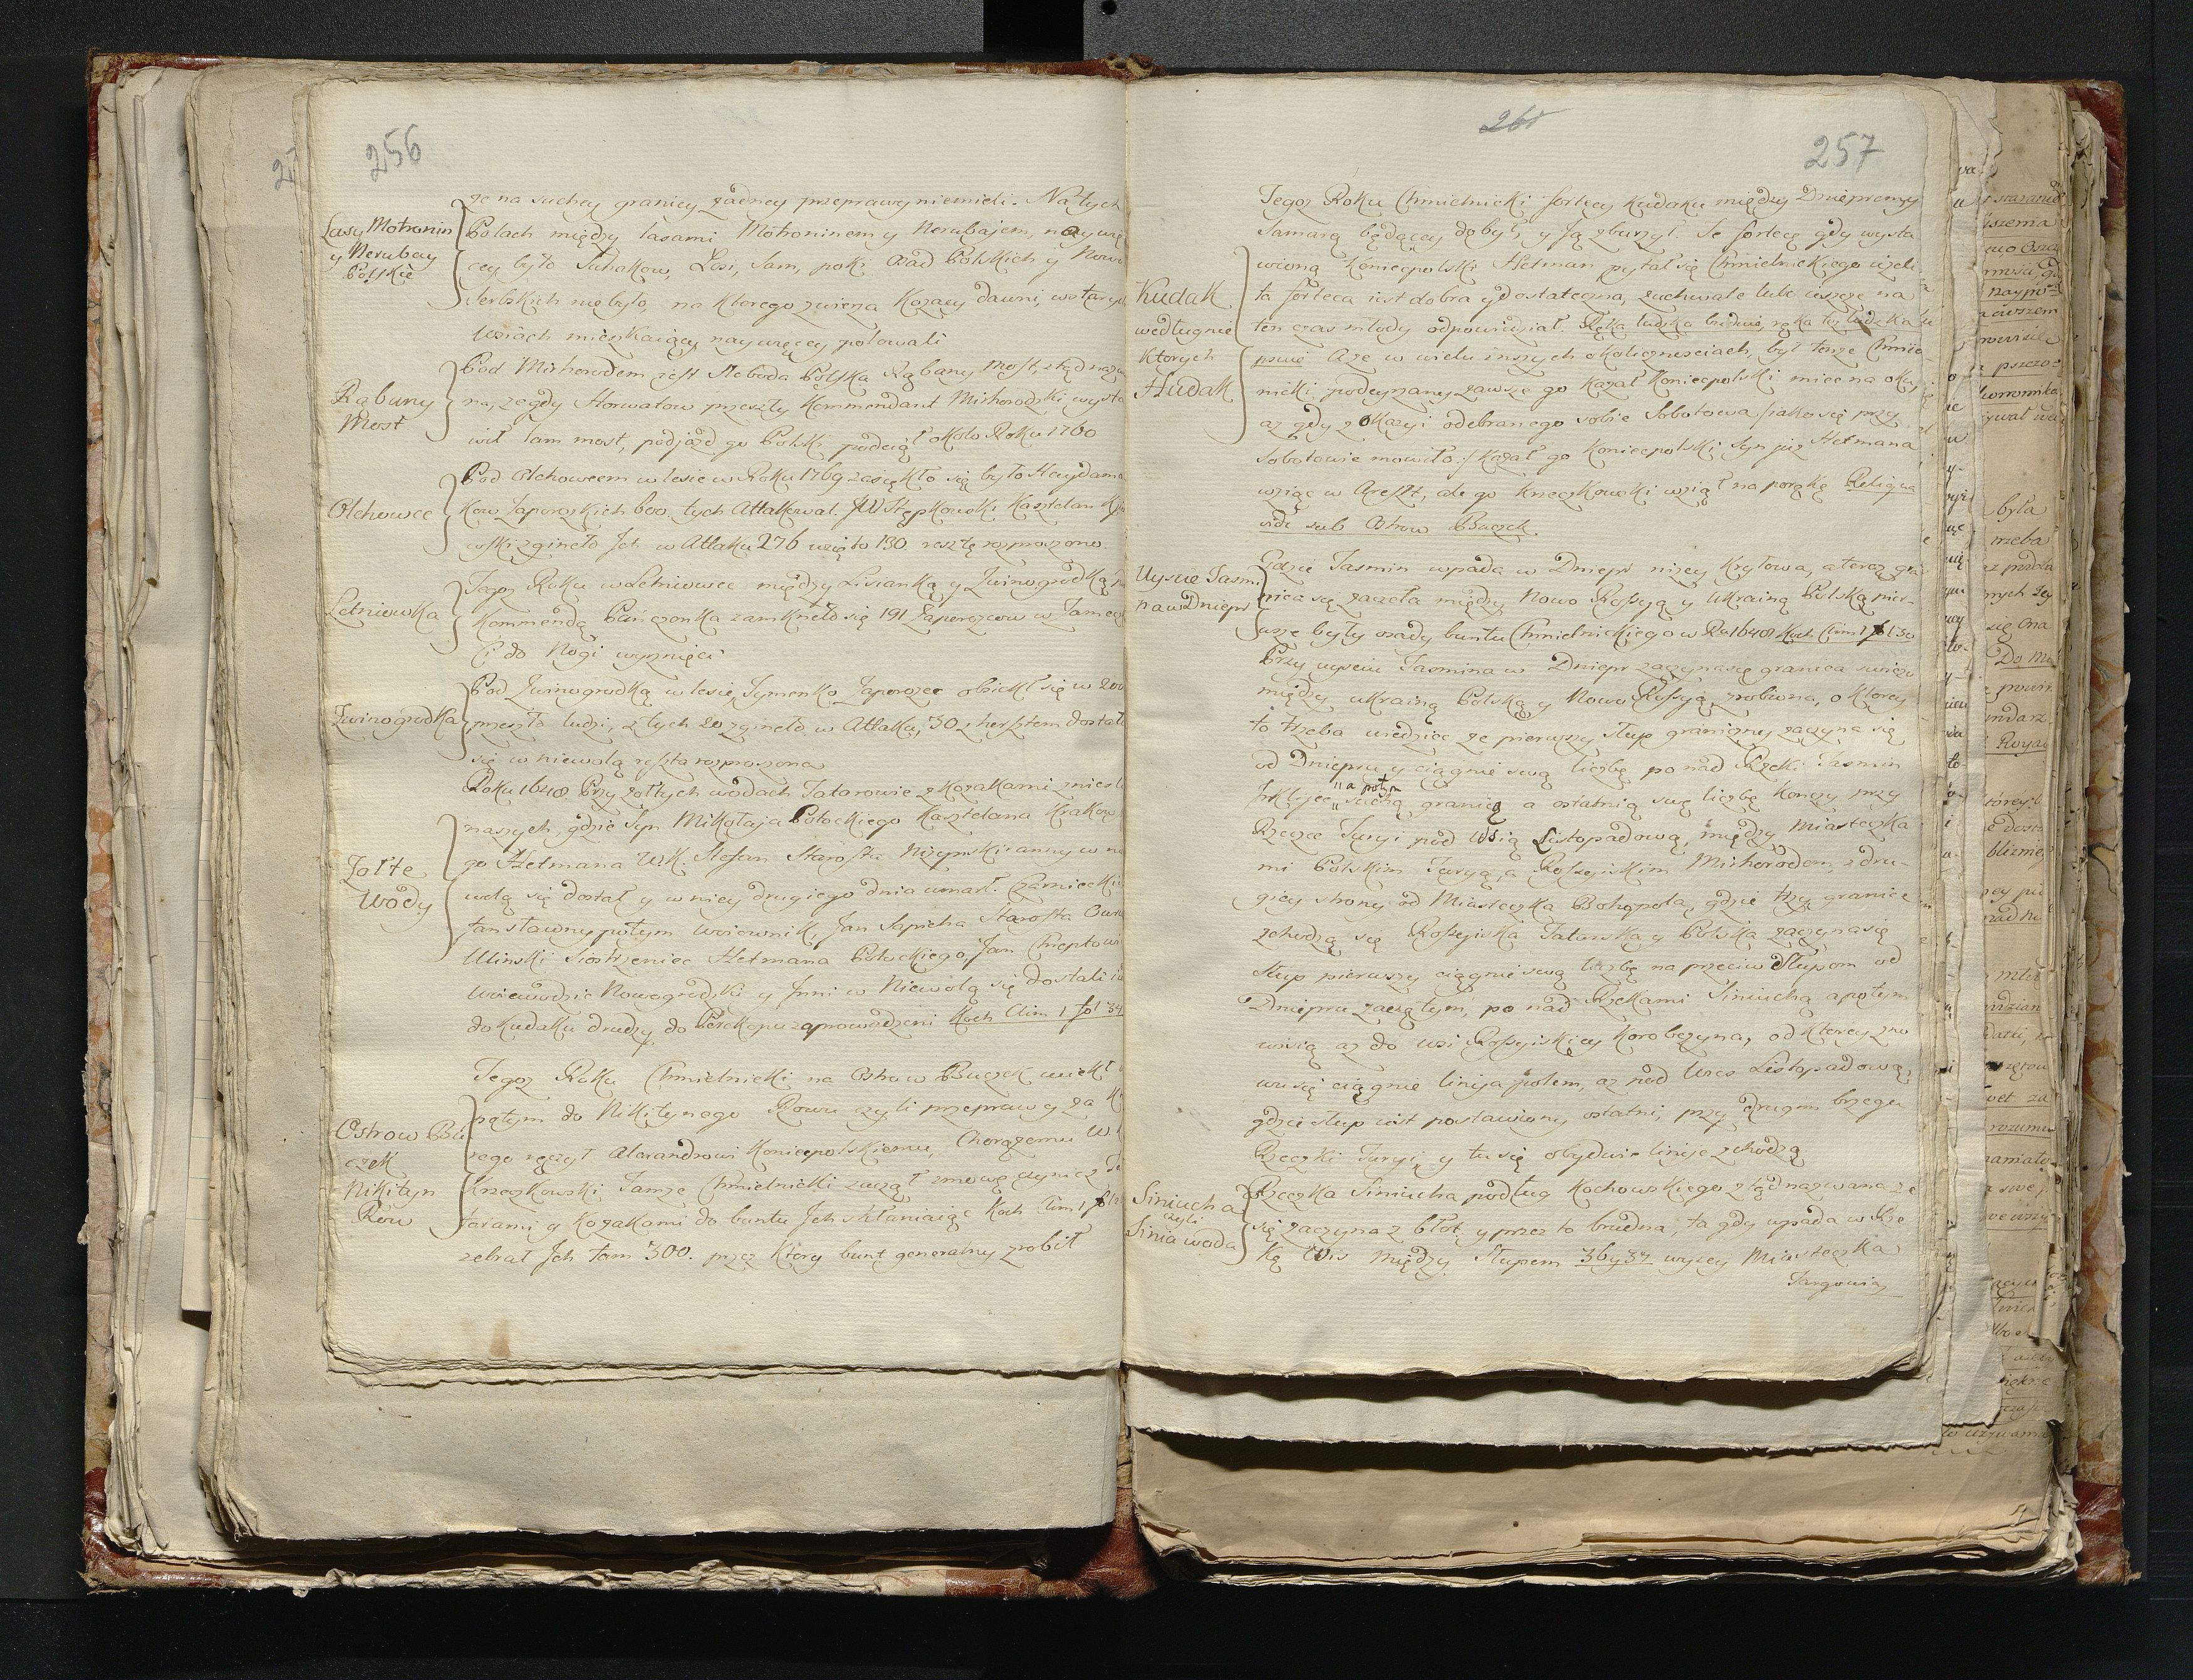 256
że na suchey granicy żadney przeprawy niemieli. Na tych
Lasy Motronin
y Nerubay
Polskie
Polach między lasami Motroninem y Nerubajem, naywię
cey było Suhakow, Łosi, Sarn, poki Osad Polskich y Nowo
Serbskich nie było, na ktorego zwierza Kozacy dawni, w starych
Wsiach mieszkaiący naywięcey polowali
Rąbany
Most
Pod Mirhorodem jest Słoboda Polska Rąbany Most, z tąd nazwa
na, że gdy Horwatow przeszły Kommendant Mirhorodzki wysta
wił tam most, podjazd go Polski podciął około Roku 1760
Olchowec
Pod Olchowcem w lesie w Roku 1769 zasiekło się było Haydama
kow Zaporozkich 600. tych Attakował JW Stępkowski Kasztelan Kijo
wski zgineło Jch w Attaku 276 wzięto 130. resztę rozproszono.
Letniowka
Tegoż Roku w Letniowce między Lisianką y Zwinogrodką
Kommendą Pańczonka zamkneło się 191 Zaporozcow w Zamecz
Ci do Nogi wyrznięci
Zwinogrodka
Pod Zwinogrodką w lesie, Symenko Zaporozec obsiekł się w 200
przeszło ludzi, z tych 20 zgineło w Attaku, 30 z hersztem dostało
się w niewolą reszta rozproszona
Roku 1648. Przy żołtych wodach Tatarowie z Kozakami znieśli
Zołte
Wody
naszych, gdzie Syn Mikołaja Potockiego Kasztelana Krakows
go Hetmana W.K. Stefan Starosta Niżynski ranny w nie
wolą się dostał y w niey drugiego dnia umarł. Czarniecki
tan sławny potym Woiownik, Jan Sapieha Starosta Owru
Ulinski Siostrzeniec Hetmana Potockiego, Jan Chreptowi
Woiewodzic Nowogrodzki y Jnni w Niewolą się dostali
do Kudaku drudzy do Perekopu zaprowadzeni Koch Clim 1 fol 34
Tegoż Roku Chmielnicki na Ostrow Buczek uciekł
Ostrow Bu
czek
Nikityn
Row
potym do Nikitynego Rowu czyli przeprawy za K
rego ręczył Alexandrowi Koniecpolskiemu, Chorążemu W.
Krzeczkowski, Tamże Chmielnicki zaczął zmowę czynić z Ta
tarami y Kozakami do buntu Jch skłaniaiąc Koch Clim 1
zebrał Jch tam 300. przez ktory bunt generalny zrobił
257
Tegoż Roku Chmielnicki fortecy Kudaku między Dnieprem y
Samarą będącey dobył, y Ją zburzył. Te fortecę gdy wysta
Kudak
według nie
ktorych
Hudak
wioną Koniecpolski Hetman pytał się Chmielnickiego ieżeli
ta forteca iest dobra y dostateczna, zuchwale lubo ieszcze na
ten czas młody odpowiedział. Ręka ludzka buduie, ręka też ludzka
psuie Aże w wielu inszych okolicznosciach, był tenże Chmie
nicki podeyrzany zawsze go kazał Koniecpolski miec na oku,
aż gdy z okazyi odebranego sobie Sobotowa /: jako się przy
Sobotowie mowiło:/ kazał go Koniecpolski Syn już Hetmana
wziąc w Areszt, ale go Krzeczkowski wziął na porękę Reliqua
vide sub Ostrow Buczek
Uyscie Tasmi
na w Dniepr
Gdzie Tasmin wpada w Dniepr niżey Kryłowa, a teraz gra
nica się zaczeła między Nowo Rossyą y Ukrainą Polską pier-
wsze były osady buntu Chmielnickiego w Ru 1648 Koch Clim 1 fol 30
Przy uyściu Tasmina w Dniepr zaczyna się granica swieżo
między ukrainą Polską y Nowo Rossyą, zrobiona, o ktorey
to trzeba wiedziec że pierwszy słup graniczny zaczyna się
od Dniepru y ciągnie swą liczbę ponad Rzeki Tasmin
Jrklejec „a potym „suchą granicą a ostatnią swę liczbę konczy przy
Rzeczce Turyi pod Wsią Listopadową, między Miasteczka
mi Polskim Turyą, a Rossyiskim Mirhorodem, z dru-
giey strony od Miasteczka Bohopola, gdzie trzy granice
schodzą się Rossyiska Tatarska y Polska zaczyna się
słup pierwszy ciągnie swą liczbę na przeciw Słupom od
Dniepru zaczętym, po nad Rzekami Siniuchą a potym
wisią aż do wsi Rossyiskiey Korobczyna, od ktorey zno
wu się ciągnie linija polem, aż nad Wies Listopadową,
gdzie słup iest postawiony ostatni, przy drugim brzegu
Rzeczki Turyi, y tu się obydwie linije schodzą
Siniucha
czyli
Sinia woda
Rzeczka Siniucha podług Kochowskiego z tąd nazwana że
się zaczyna z błot, y przez to brudna, ta gdy wpada w Rze
kę Wis między Słupem 36 y 37 wyżey Miasteczka
Targowicy